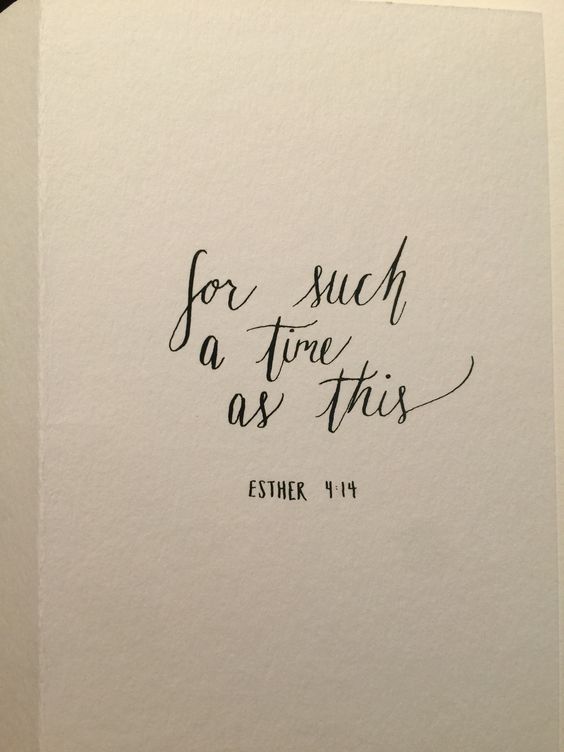 for such
a time
as this
ESTHER 4:14